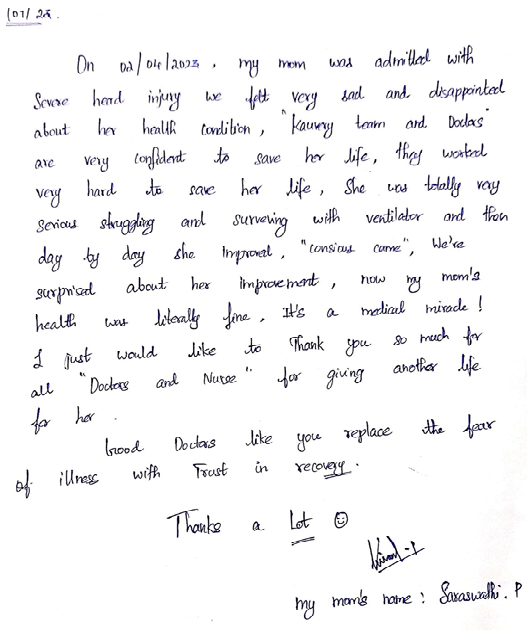 On 02/04/2023, my mom was admitted with
Severe head injury we felt very sad and disappointed
about her health condition, "Kauvery team and Doctors"
are very confident to save her life, they worked
very hard to save her life, She was totally very
serious struggling and surveving with ventilator and then
day by day she Improved, "consious came", We're
surprised about her Improvement, now my mom's
health was literally fine, It's a medical miracle!
I just would like to Thank you so much for
all "Doctors and Nurse" for giving another life
for her.
Good Doctors like you replace the fear
of illness with Trust in recovery.
Thanks a Lot ☺
my mom's name: Saraswathi. P